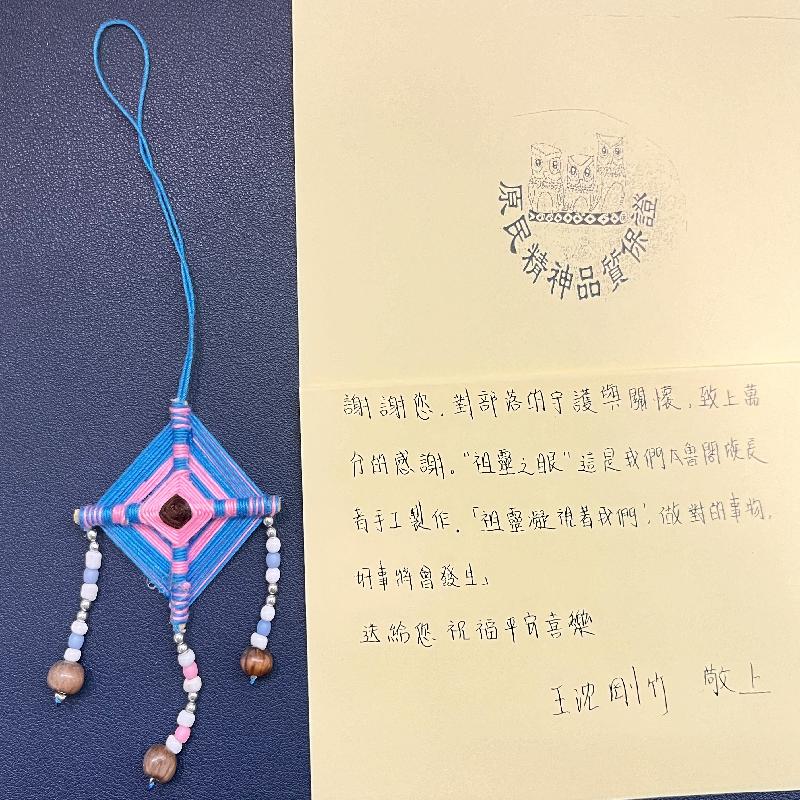 原民精神品質保證
謝謝您。對部落的守護與關懷,致上萬
分的感謝。"祖靈之眼"這是我們太魯閣族長
者手工製作,「祖靈凝視着我們」,做對的事物,
好事將會發生」
送給您 祝福平安喜樂
王沈剛竹 敬上